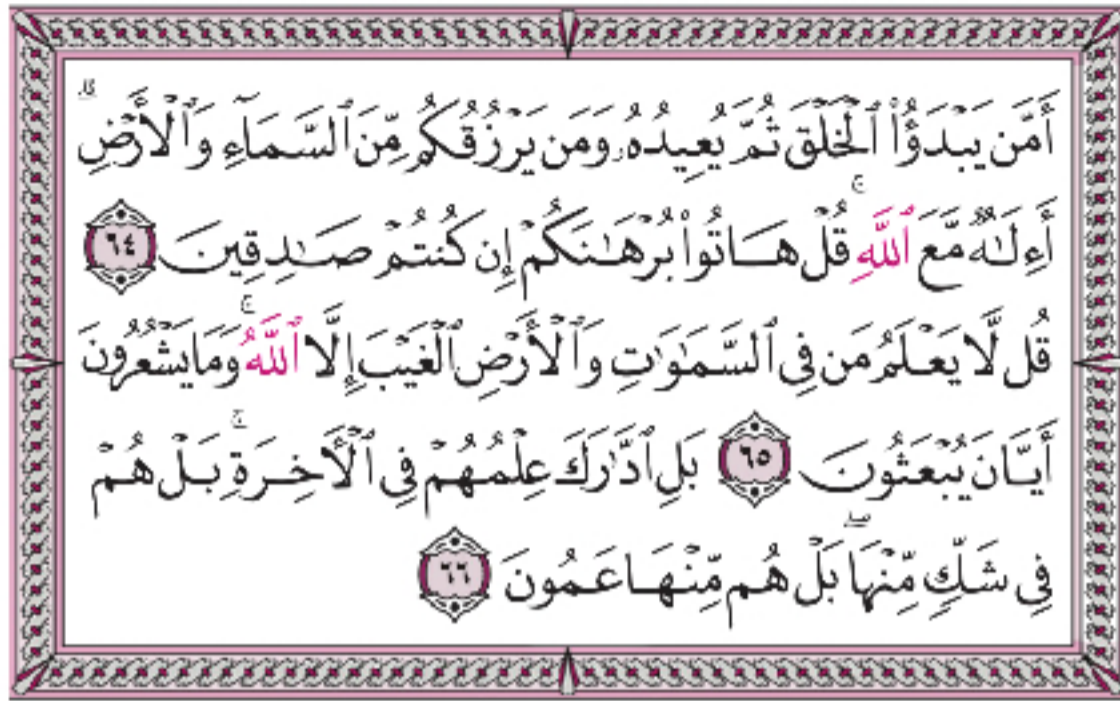 أَمَّن يَبْدَؤُا۟ ٱلْخَلْقَ ثُمَّ يُعِيدُهُۥ وَمَن يَرْزُقُكُم مِّنَ ٱلسَّمَآءِ وَٱلْأَرْضِ ۗ
أَءِلَـٰهٌ مَّعَ ٱللَّهِ ۚ قُلْ هَاتُوا۟ بُرْهَـٰنَكُمْ إِن كُنتُمْ صَـٰدِقِينَ ٦٤
قُل لَّا يَعْلَمُ مَن فِى ٱلسَّمَـٰوَٰتِ وَٱلْأَرْضِ ٱلْغَيْبَ إِلَّا ٱللَّهُ ۚ وَمَا يَشْعُرُونَ
أَيَّانَ يُبْعَثُونَ ٦٥ بَلِ ٱدَّٰرَكَ عِلْمُهُمْ فِى ٱلْـَٔاخِرَةِ ۚ بَلْ هُمْ
فِى شَكٍّ مِّنْهَا ۖ بَلْ هُم مِّنْهَا عَمُونَ ٦٦